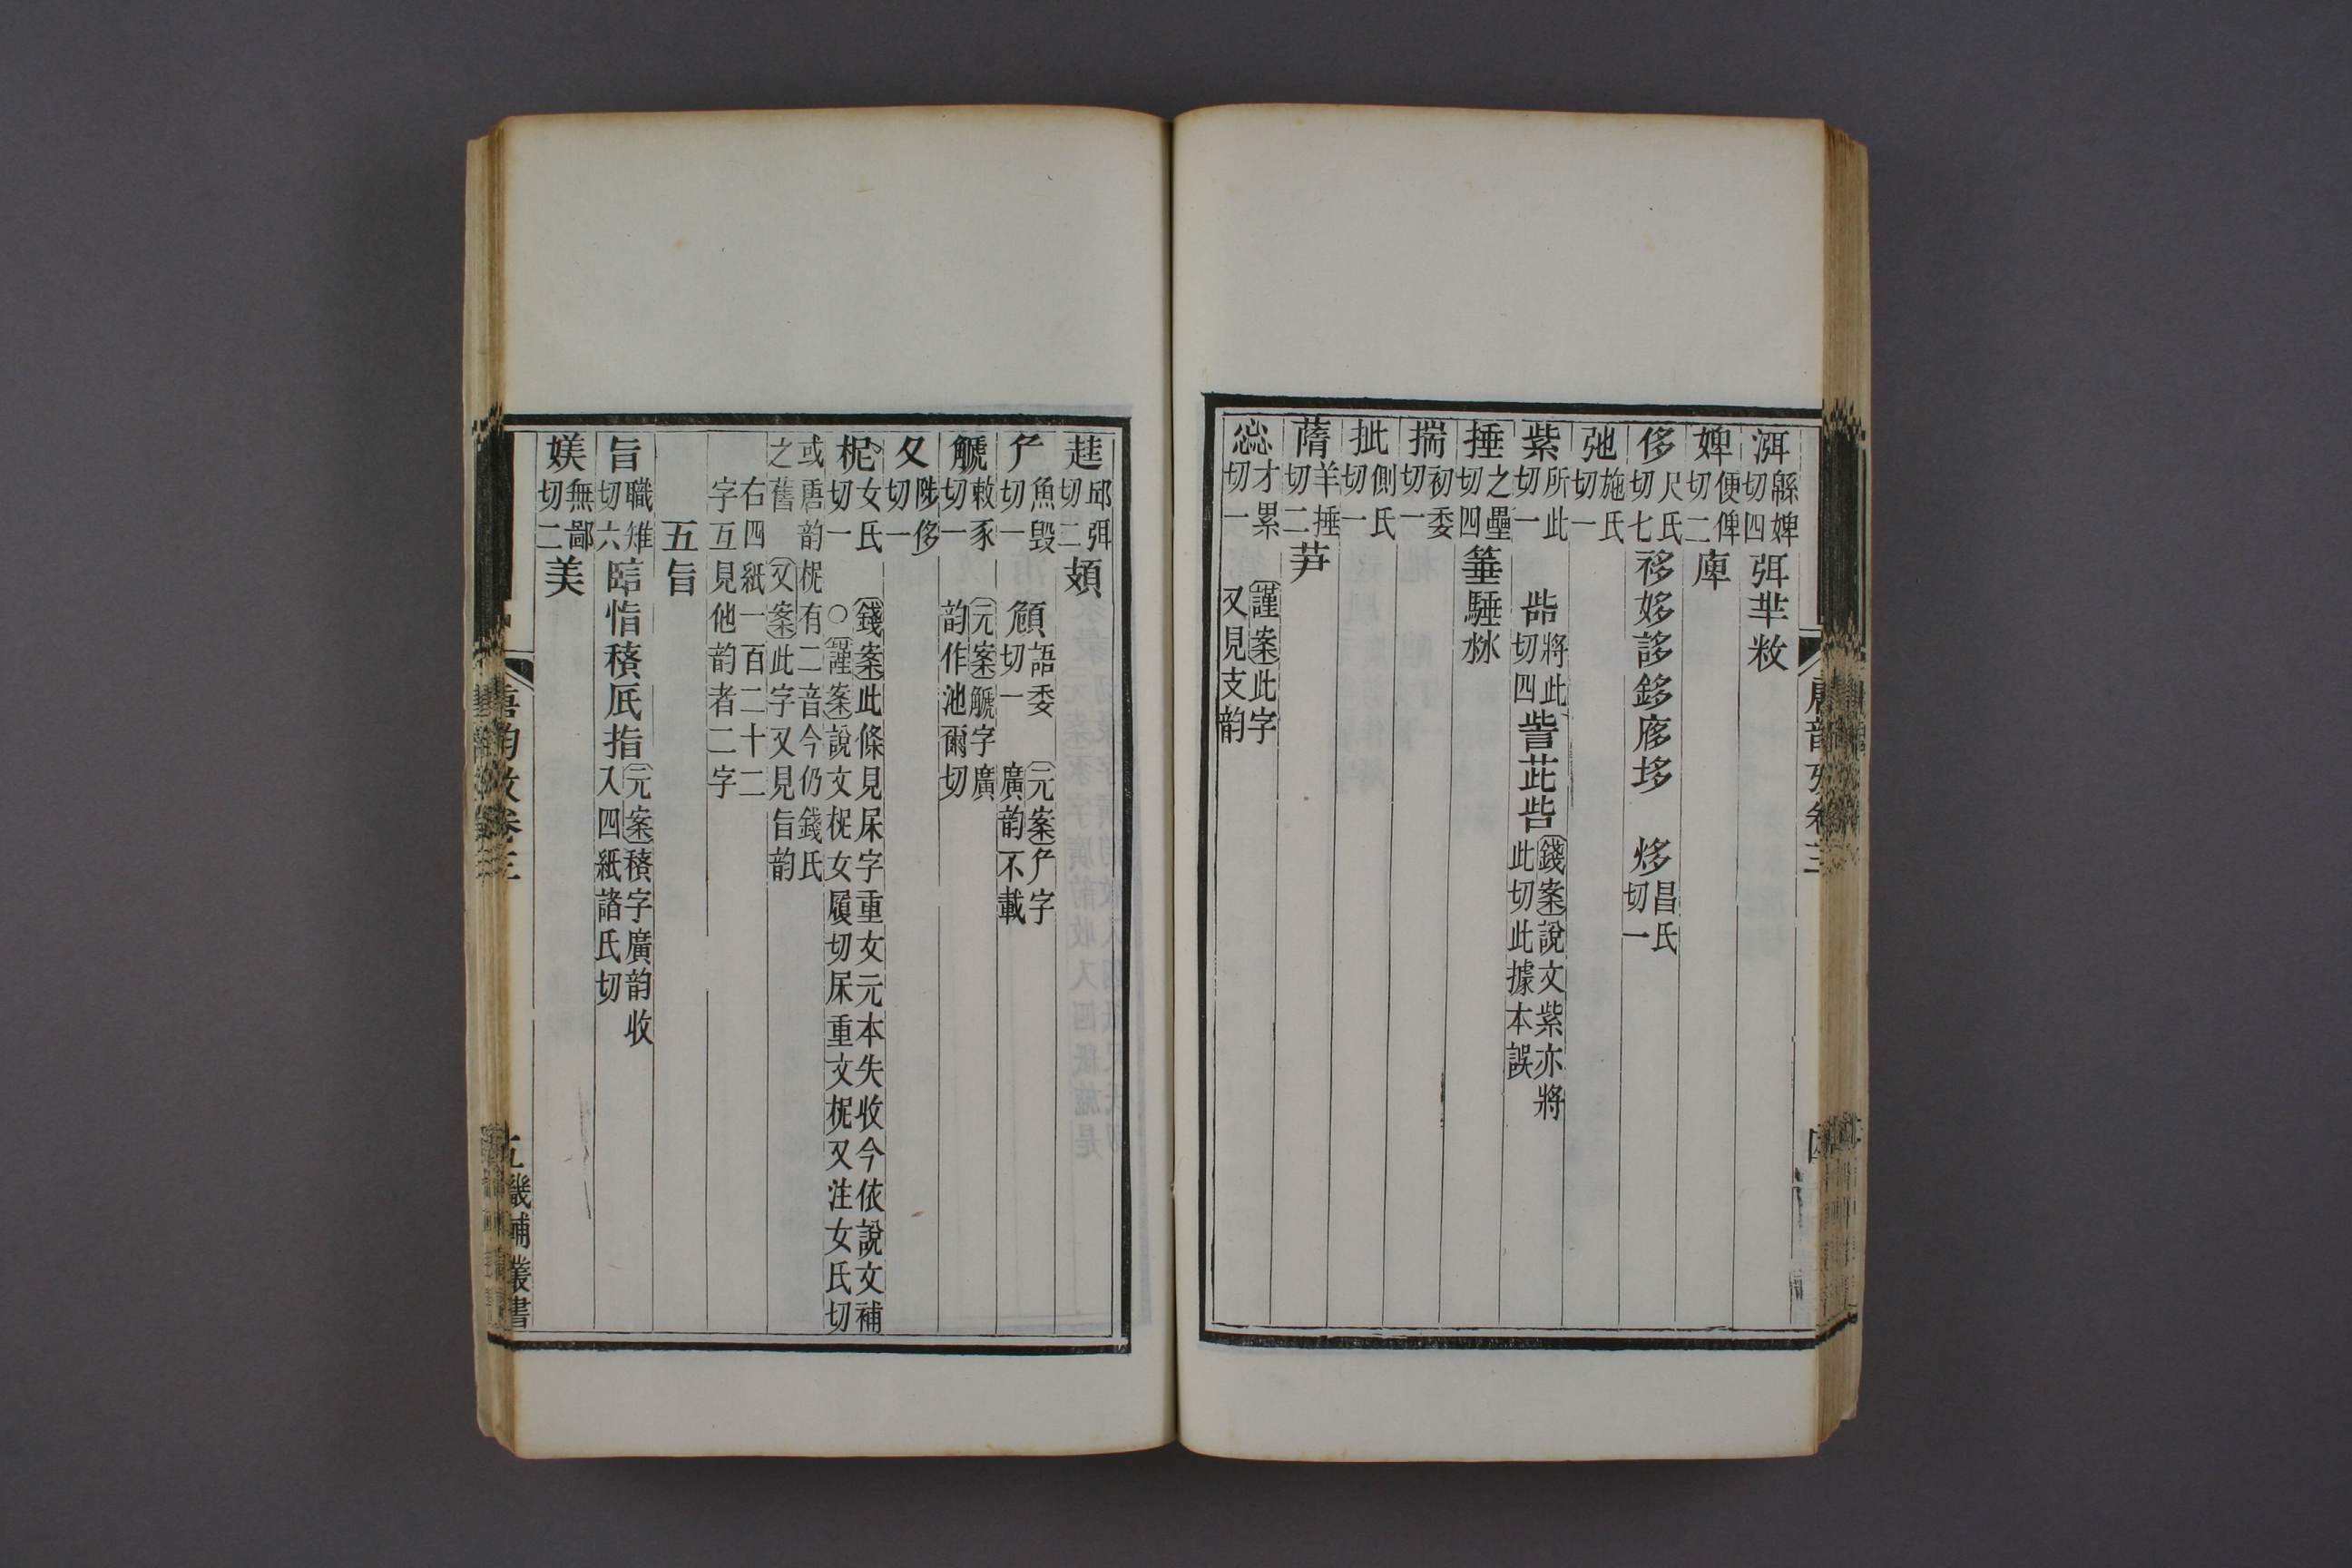 洱緜婢切四弭羋敉
婢便俾切二庳
侈尺氏切七袳姼誃鉹㢋垑 㶴昌氏切一
弛施氏切一
紫所此切一 㧘將此切四訾茈呰錢案說文紫亦將此切此據本誤
捶之壘切四箠騹沝
揣初委切一
批側氏切一
蓨羊捶切二芛
惢才累切一 謹案此字又見支韵
唐韵攷卷三 四
趌邱弭切二頍
厃魚毀切一 頠語委切一 元案厃字廣韵不載
觿敕豕切一 元案觿字廣韵作池爾切
夂陟侈切一
柅女氏切一 錢案此條見杘字重文元本失收今依說文補○謹案說文柅女履切杘重文柅又注女氏切
或唐韵柅有二音今仍錢氏之舊 又案此字又見旨韵
右四紙一百二十二字互見他韵者二字
五旨
旨職雉切六𦣞恉䅩厎指元案䅩字廣韵收入四紙諸氏切
媄無鄙切二美
唐韵攷卷三 五 畿輔叢書